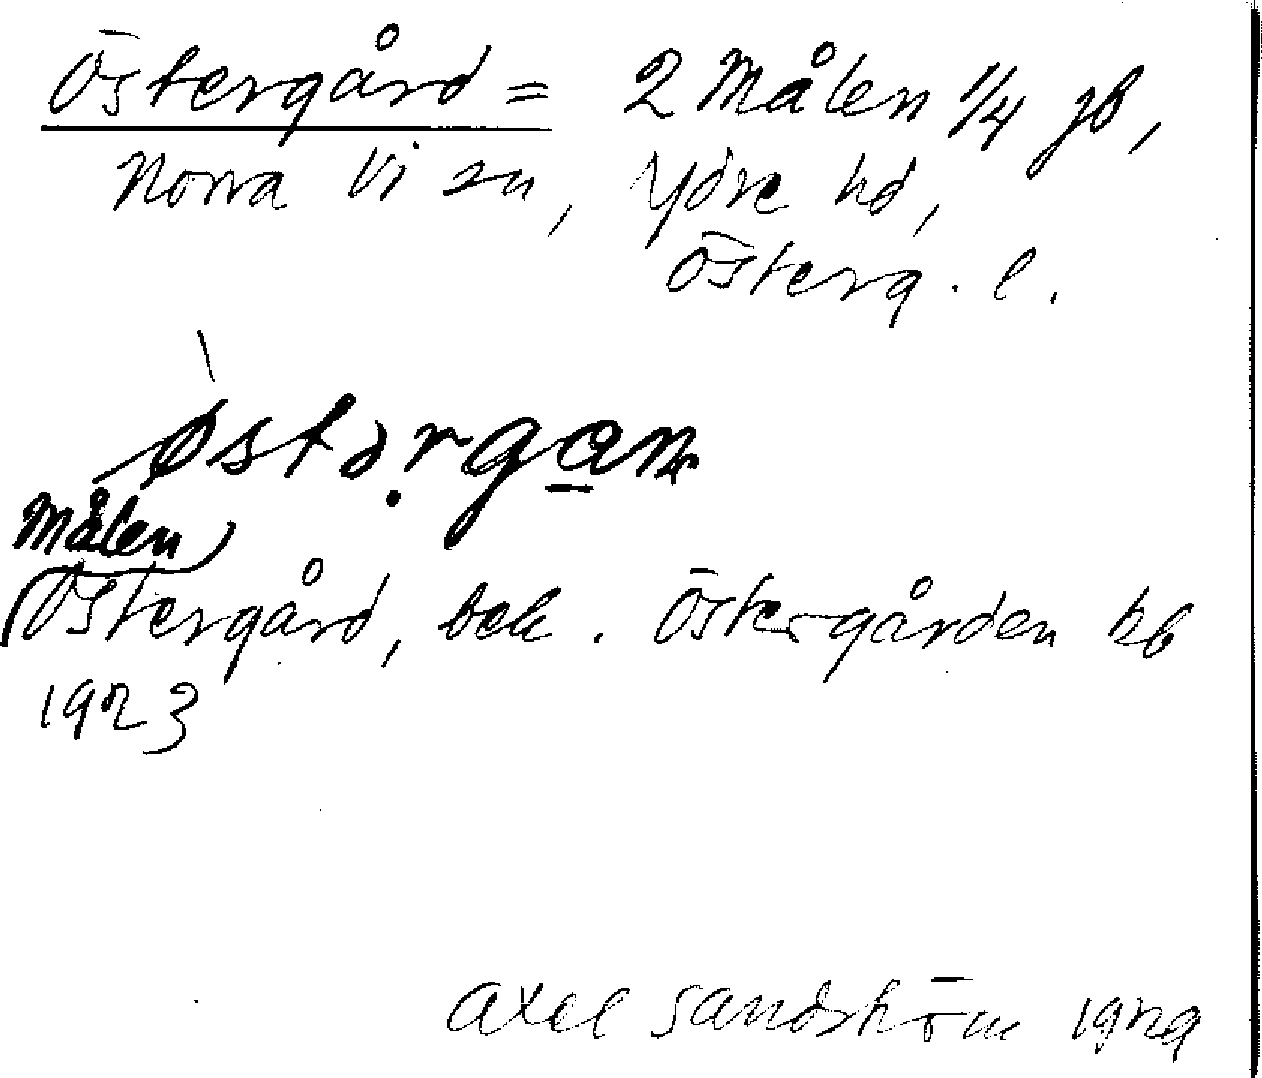 Östergård = 2 Målen 1/4 jb,
Norra Vi sn, Ydre hd,
Österg. l.
\
østə̣rga̲n
Målen
Östergård, bek. Östergården kb
1923
Axel Sandström 1929